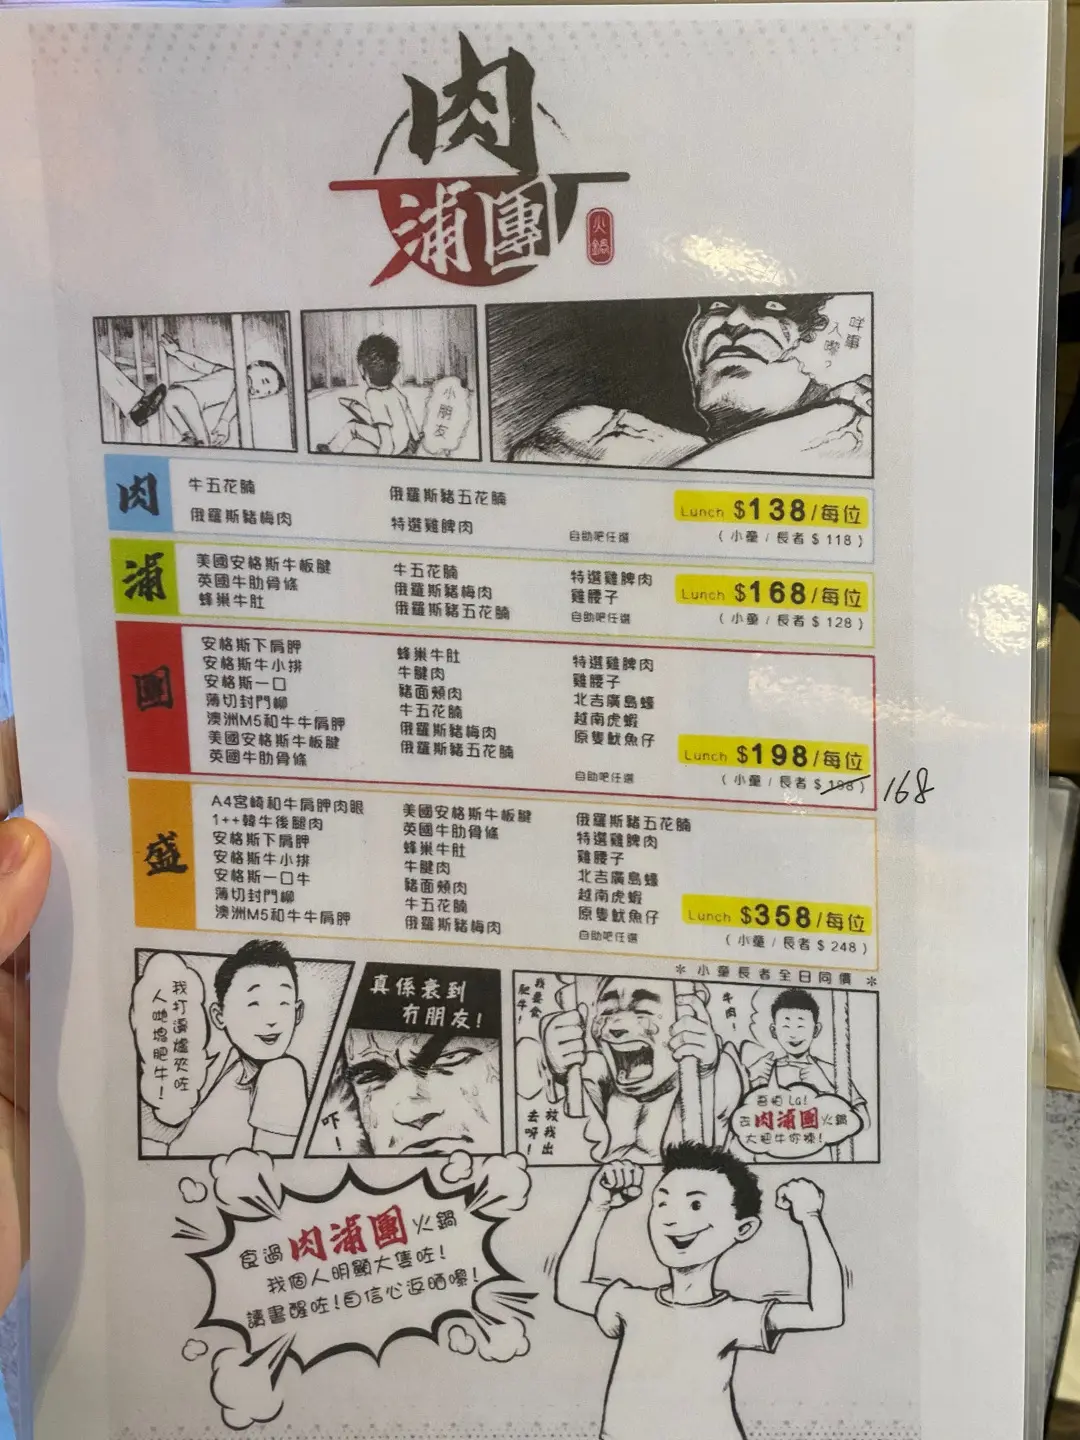 肉
浦團
火鍋
小朋友
咩事
入嚟?
肉
牛五花腩
俄羅斯豬梅肉
俄羅斯豬五花腩
特選雞脾肉
自助吧任選
Lunch $138/每位
( 小童 / 長者 $ 118 )
浦
美國安格斯牛板腱
英國牛肋骨條
蜂巢牛肚
牛五花腩
俄羅斯豬梅肉
俄羅斯豬五花腩
特選雞脾肉
雞腰子
自助吧任選
Lunch $168/每位
( 小童 / 長者 $ 128 )
團
安格斯下肩胛
安格斯牛小排
安格斯一口
薄切封門柳
澳洲M5和牛牛肩胛
美國安格斯牛板腱
英國牛肋骨條
蜂巢牛肚
牛腱肉
豬面頰肉
牛五花腩
俄羅斯豬梅肉
俄羅斯豬五花腩
特選雞脾肉
雞腰子
北吉廣島蠔
越南虎蝦
原隻魷魚仔
自助吧任選
Lunch $198/每位
( 小童 / 長者 $ 198 ) 168
盛
A4宮崎和牛肩胛肉眼
1++韓牛後腿肉
安格斯下肩胛
安格斯牛小排
安格斯一口牛
薄切封門柳
澳洲M5和牛牛肩胛
美國安格斯牛板腱
英國牛肋骨條
蜂巢牛肚
牛腱肉
豬面頰肉
牛五花腩
俄羅斯豬梅肉
俄羅斯豬五花腩
特選雞脾肉
雞腰子
北吉廣島蠔
越南虎蝦
原隻魷魚仔
自助吧任選
Lunch $358/每位
( 小童 / 長者 $ 248 )
* 小童長者全日同價 *
我打邊爐夾咗
人哋塊肥牛!
真係衰到
冇朋友!
吓!
我要食
肥牛!
放我出
去呀!
牛肉!
吾怕 La!
去肉浦團火鍋
大把牛你揀!
食過肉浦團火鍋
我個人明顯大隻咗!
讀書醒咗!自信心返晒嚟!